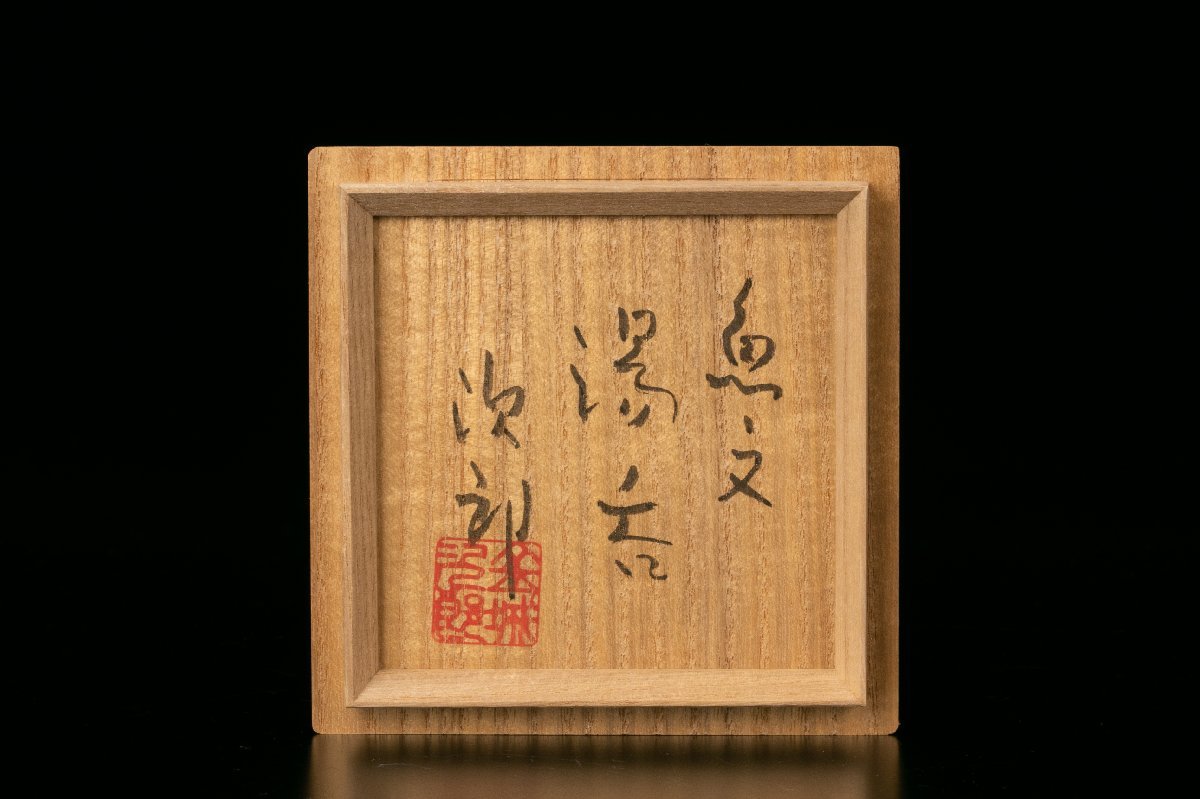 魚文
湯呑
次郎